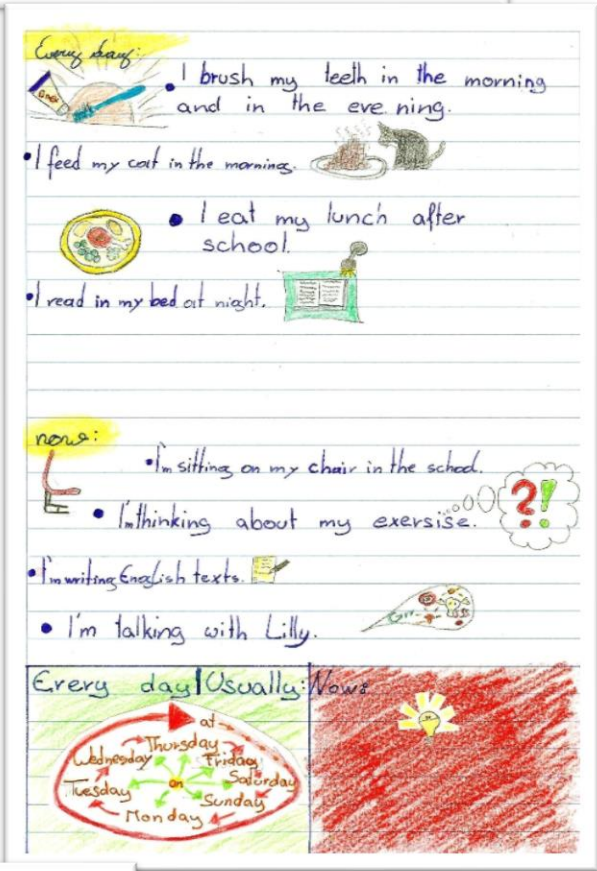 Every day:
• I brush my teeth in the morning
and in the evening.
• I feed my cat in the morning.
• I eat my lunch after
school.
• I read in my bed at night.
now:
• I'm sitting on my chair in the school.
• I'm thinking about my exersise.
?!
• I'm writing English texts.
• I'm talking with Lilly.
Every day/Usually: Now:
at
Wednesday Thursday Friday
Tuesday on Saturday
Monday Sunday